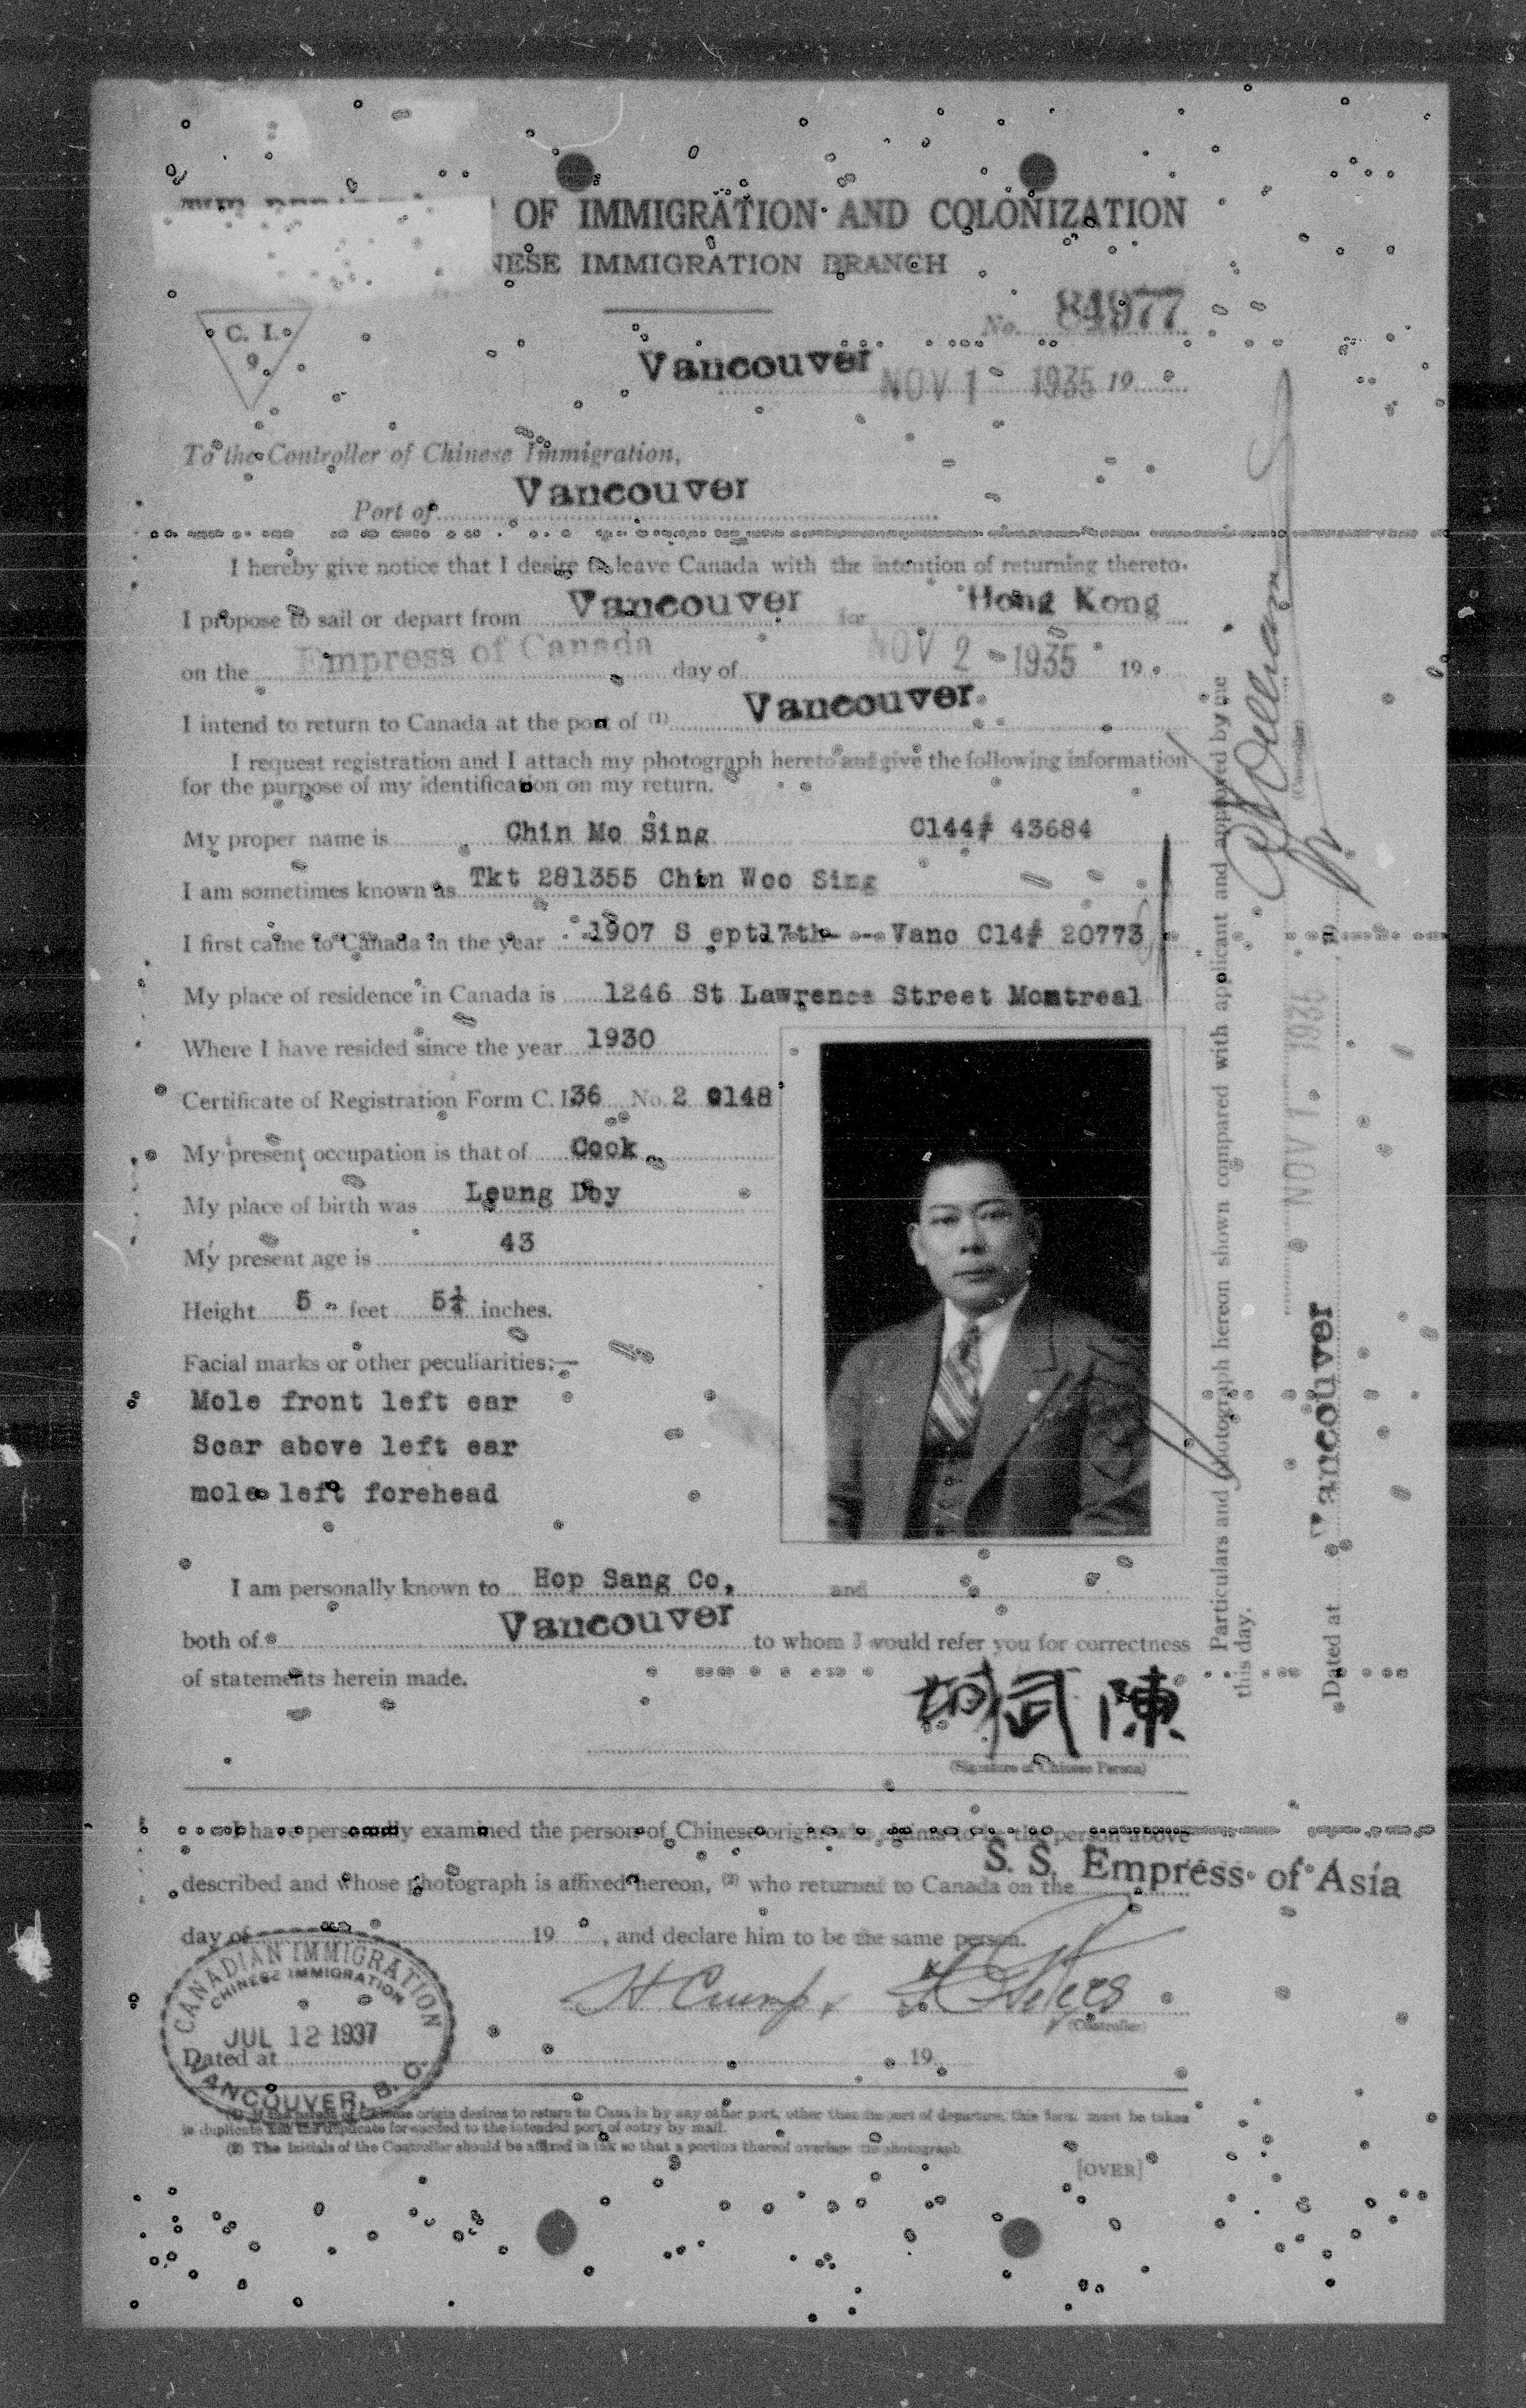 OF IMMIGRATION AND COLONIZATION
NESE IMMIGRATION BRANCH
C. I.
9
No. 84977
Vancouver NOV 1 - 1935 19
To the Controller of Chinese Immigration,
Port of Vancouver
I hereby give notice that I desire to leave Canada with the intention of returning thereto.
I propose to sail or depart from Vancouver for Hong Kong
on the Empress of Canada day of NOV 2 - 1935 19
I intend to return to Canada at the port of (1) Vancouver.
I request registration and I attach my photograph hereto and give the following information
for the purpose of my identification on my return.
My proper name is Chin Mo Sing C144# 43684
I am sometimes known as Tkt 281355 Chin Woo Sing
I first came to Canada in the year 1907 S ept17th- -- Vanc C14# 20773
My place of residence in Canada is 1246 St Lawrence Street Montreal
Where I have resided since the year 1930
Certificate of Registration Form C. I. 36 No. 2 0148
My present occupation is that of Cook
My place of birth was Leung Doy
My present age is 43
Height 5 - feet 5¼ inches.
Facial marks or other peculiarities:—
Mole front left ear
Scar above left ear
mole left forehead
I am personally known to Hop Sang Co, and
both of Vancouver to whom I would refer you for correctness
of statements herein made.
陳
(Signature of Chinese Person)
I have personally examined the person of Chinese origin who claims to be the person above
described and whose photograph is affixed hereon, (2) who returned to Canada on the S. S. Empress of Asia
day of 19 , and declare him to be the same person.
H Crump,
(Controller)
CANADIAN IMMIGRATION
CHINESE IMMIGRATION
JUL 12 1937
VANCOUVER, B. C.
Dated at 19
(1) If the person of Chinese origin desires to return to Canada by any other port, other than the port of departure, this form must be taken
in duplicate and the duplicate forwarded to the intended port of entry by mail.
(2) The initials of the Controller should be affixed in ink so that a portion thereof overlaps the photograph
[OVER]
Particulars and photograph hereon shown compared with applicant and approved by the
this day.
(Controller)
Dated at Vancouver NOV 1 - 1935 19